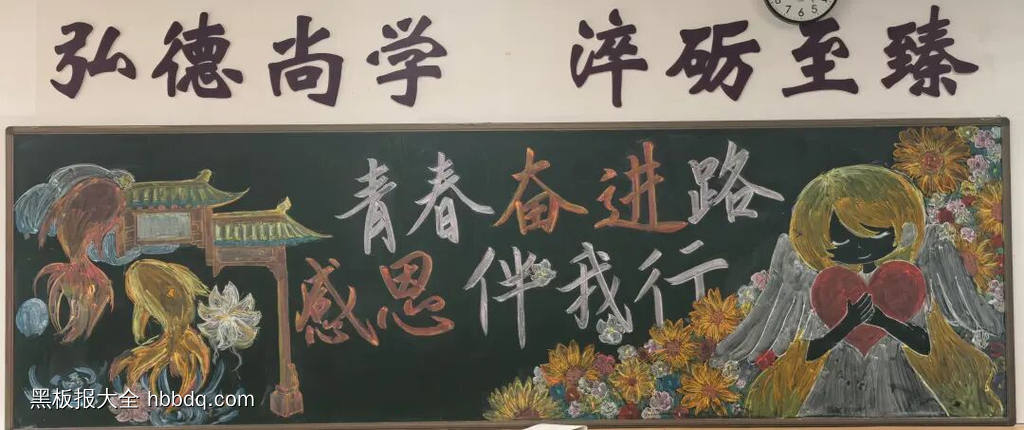 弘德尚学 淬砺至臻
青春奋进路
感恩伴我行
黑板报大全 hbbdq.com